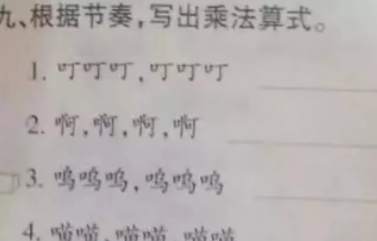 九、根据节奏,写出乘法算式。
1. 叮叮叮,叮叮叮
2. 啊,啊,啊,啊
3. 呜呜呜,呜呜呜
4. 喵喵,喵喵,喵喵